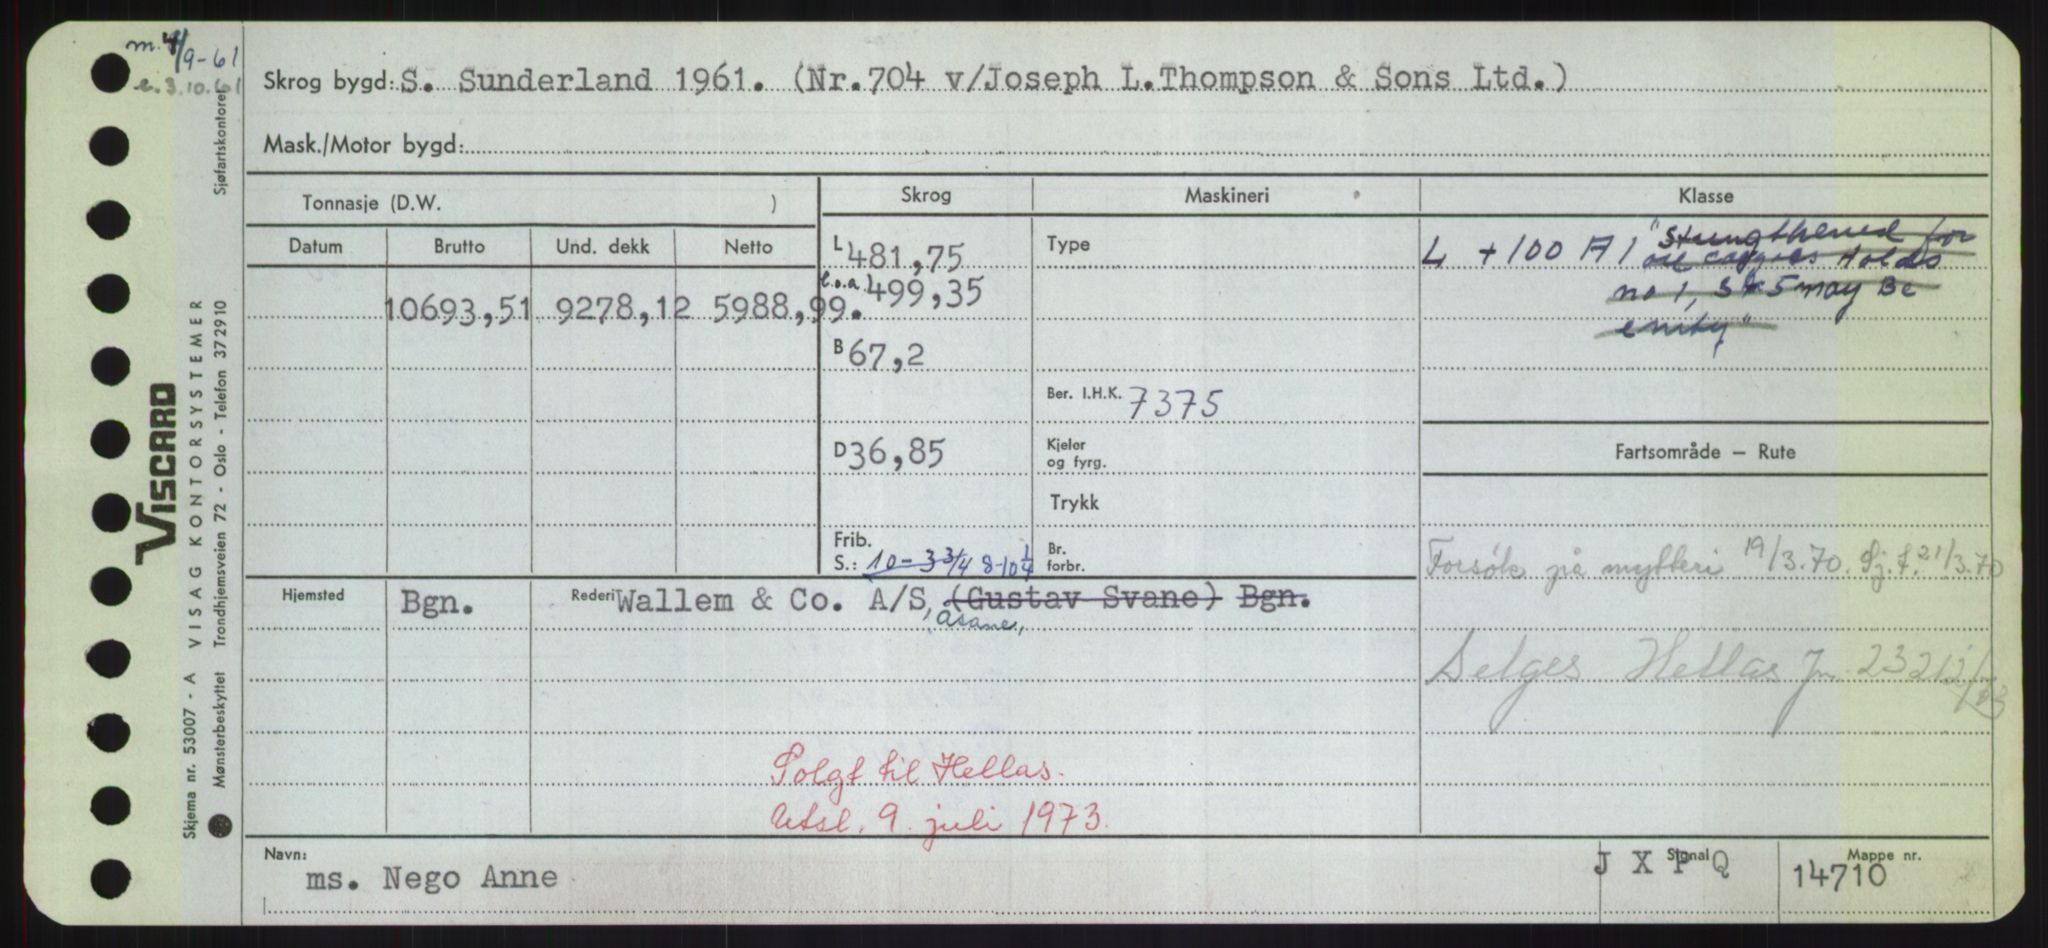 m. 4/9-61
e. 3.10.61
Sjøfartskontoret
Skrog bygd: S. Sunderland 1961. (Nr.704 v/Joseph L.Thompson & Sons Ltd.)
Mask./Motor bygd:
Tonnasje (D.W. )
Skrog Maskineri Klasse
Datum Brutto Und. dekk Netto
10693,51 9278,12 5988,99.
L 481,75
l.o.a. 499,35
B 67,2
D 36,85
Frib.
S.: 10-3 3/4 8-10 1/4
Type
Ber. I.H.K. 7375
Kjeler
og fyrg.
Trykk
Br.
forbr.
L + 100 A 1 "Strengthened for
ore cargoes Holds
no 1, 3 & 5 may Be
emty"
Fartsområde – Rute
Forsök på mytteri 19/3.70. Sj.f. 21/3.70
Selges Hellas Jn. 232 12/
Hjemsted Bgn. Rederi Wallem & Co. A/S, (Gustav Svane) Bgn.
Åsane,
Solgt til Hellas.
Utsl. 9. juli 1973.
Navn: ms. Nego Anne
Signal J X P Q
Mappe nr. 14710
VISCARD
VISAG KONTORSYSTEMER
Skjema nr. 53007 - A
Mønsterbeskyttet Trondhjemsveien 72 - Oslo - Telefon 372910